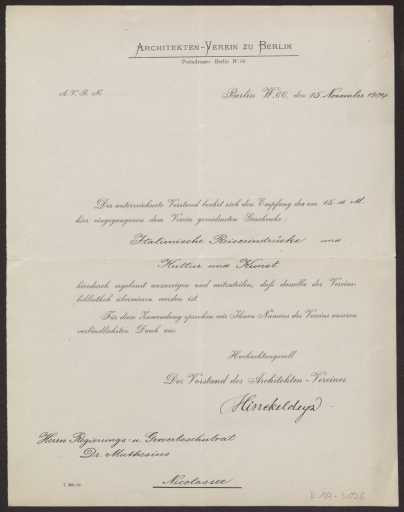 ARCHITEKTEN-VEREIN ZU BERLIN
Postadresse: Berlin W. 66
A.V.B. №
Berlin W. 66, den 15 November 1904
Der unterzeichnete Vorstand beehrt sich den Empfang des am 15. d. M.
hier eingegangenen dem Verein gewidmeten Geschenks:
Italienische Reiseeindrücke und
Kultur und Kunst
hierdurch ergebenst anzuzeigen und mitzuteilen, daß dasselbe der Vereins-
bibliothek überwiesen worden ist.
Für diese Zuwendung sprechen wir Ihnen Namens des Vereins unseren
verbindlichsten Dank aus.
Hochachtungsvoll
Der Vorstand des Architekten-Vereines
Hinckeldeyn
Herrn Regierungs- u. Gewerbeschulrat
Dr. Muthesius
Nicolassee